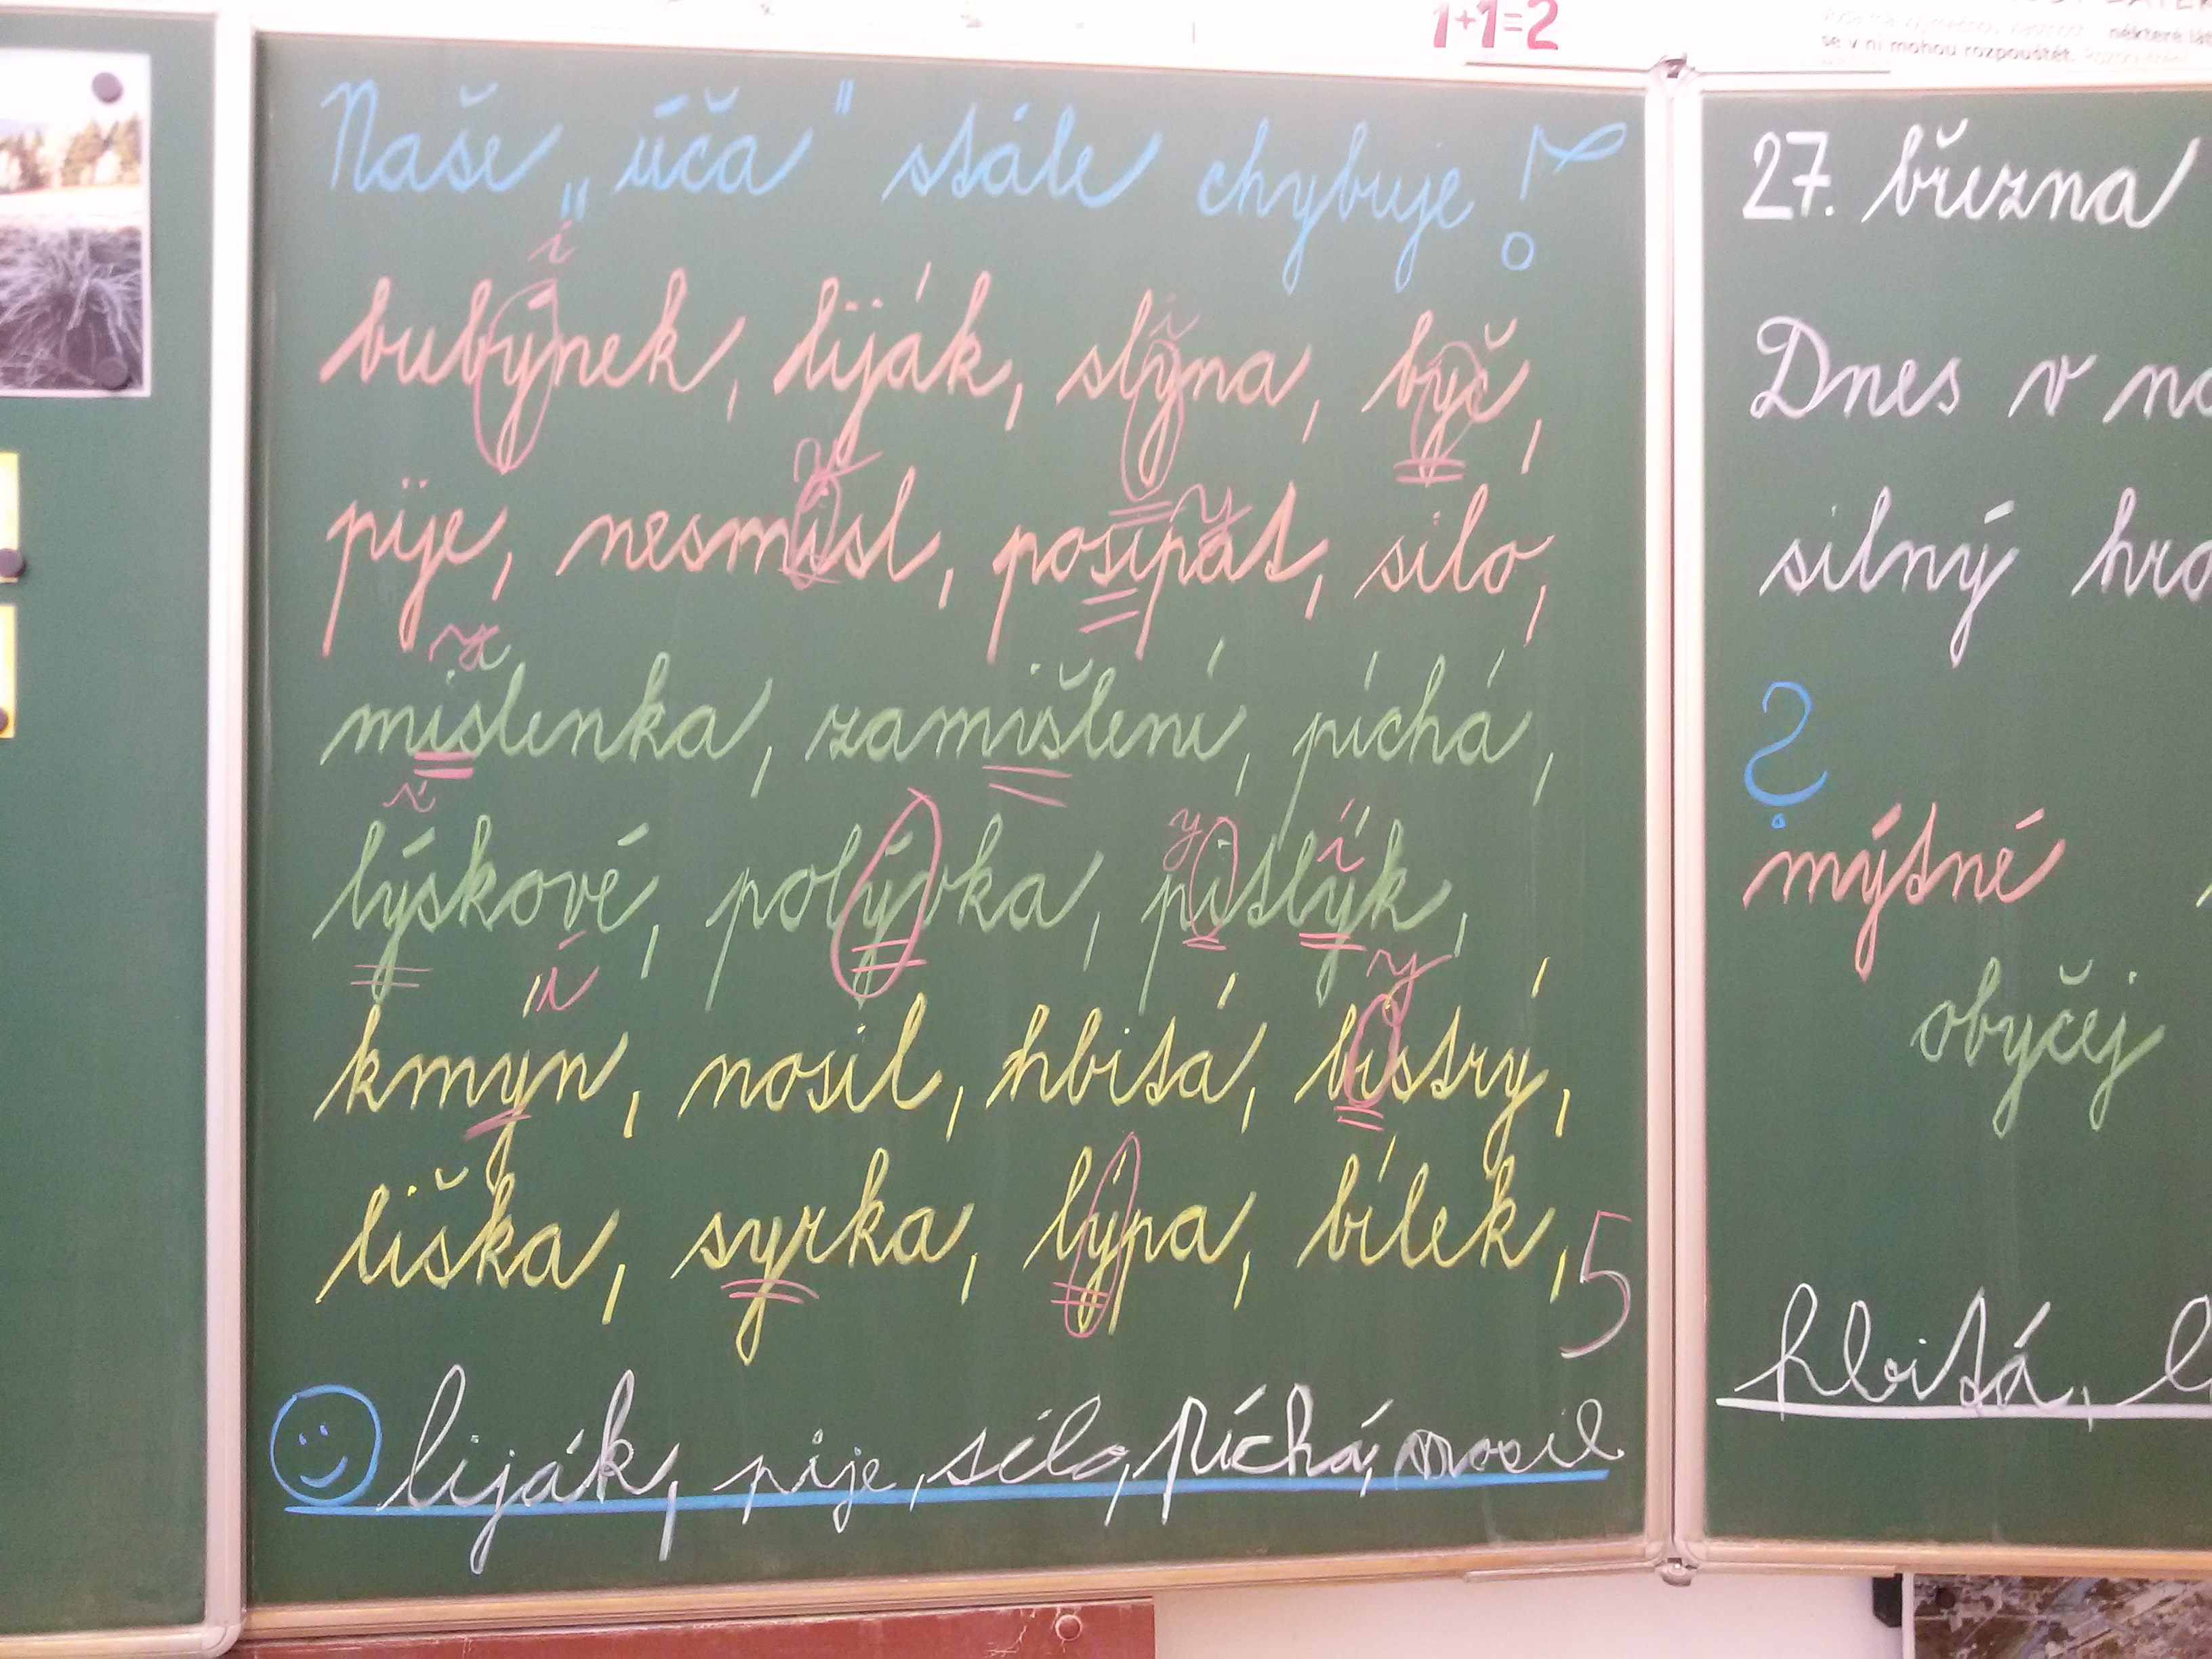 1+1=2
některé
se v ní mohou rozpouštět.
Naše „úča" stále chybuje!
i
bubýnek, liják, slýna, byč,
i
y
pije, nesmisl, posipat, silo,
y
y
mišlenka, zamišlení, píchá,
i
lýskové, polývka, pitlýk,
y
í
í
kmýn, nosil, hbitá, bistrý,
y
liška, syrka, lýpa, bílek,
5
liják, pije, sílo, píchá, nosil
27. března
Dnes v
silný
?
mýtné
obyčej
hbitá,